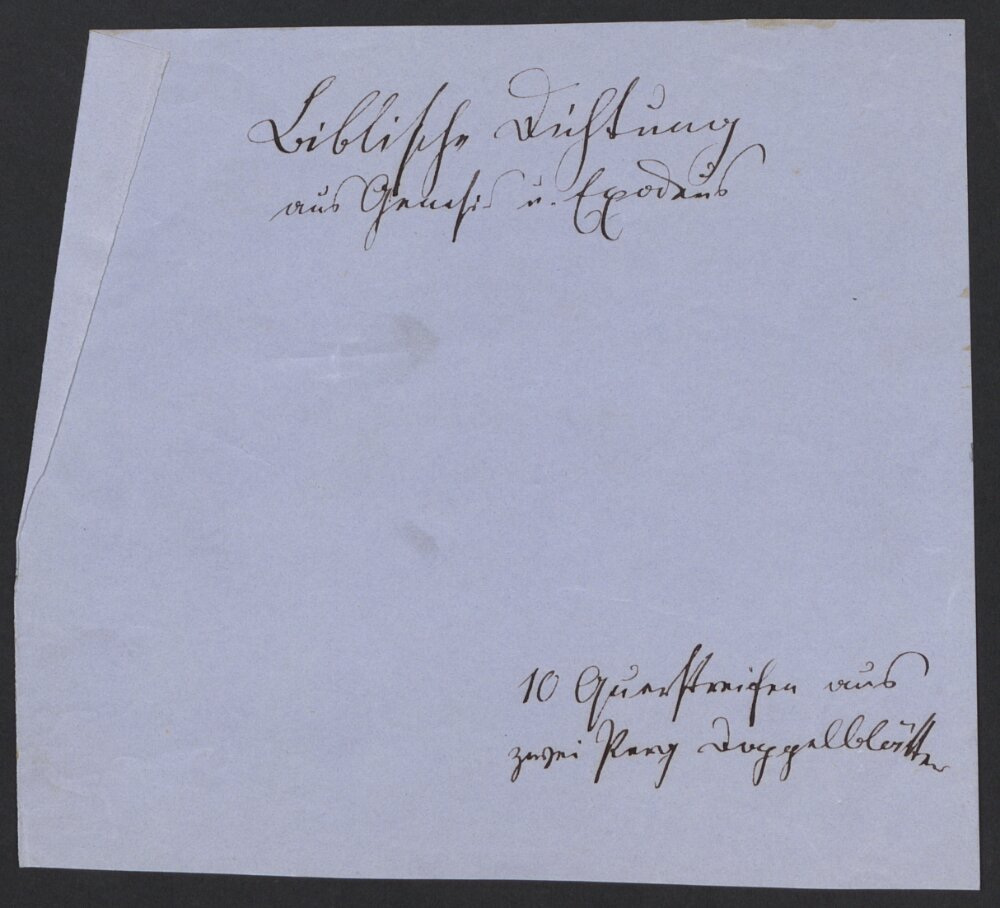 Biblische Dichtung
aus Genesis u. Exodus
10 Querstreifen aus
zwei Perg Doppelblätter